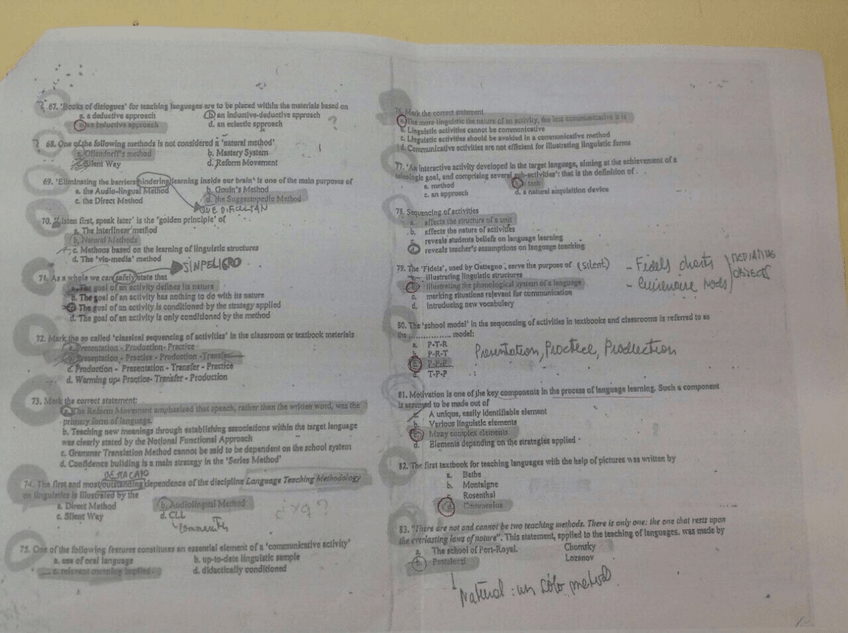 67. 'Books of dialogues' for teaching languages are to be placed within the materials based on
a. a deductive approach
b. an inductive-deductive approach
c. an inductive approach
d. an eclectic approach
?
68. One of the following methods is not considered a 'natural method'
a. Ollendorff's method
b. Mastery System
c. Silent Way
d. Reform Movement
69. 'Eliminating the barriers hindering learning inside our brain' is one of the main purposes of
a. the Audio-lingual Method
b. Gouin's Method
c. the Direct Method
d. the Suggestopedia Method
QUE DIFICULTAN
70. 'Listen first, speak later' is the 'golden principle' of
a. The interlinear method
b. Natural Methods
c. Methods based on the learning of linguistic structures
d. The 'via-media' method
SIN PELIGRO
71. As a whole we can safely state that
a. The goal of an activity defines its nature
b. The goal of an activity has nothing to do with its nature
c. The goal of an activity is conditioned by the strategy applied
d. The goal of an activity is only conditioned by the method
72. Mark the so called 'classical sequencing of activities' in the classroom or textbook materials
a. Presentation - Production - Practice
b. Presentation - Practice - Production - Transfer
c. Production - Presentation - Transfer - Practice
d. Warming up - Practice - Transfer - Production
73. Mark the correct statement:
a. The Reform Movement emphasized that speech, rather than the written word, was the
primary form of language.
b. Teaching new meanings through establishing associations within the target language
was clearly stated by the Notional Functional Approach
c. Grammar Translation Method cannot be said to be dependent on the school system
d. Confidence building is a main strategy in the 'Series Method'
74. The first and most outstanding dependence of the discipline Language Teaching Methodology
on linguistics is illustrated by the
a. Direct Method
b. Audiolingual Method
c. Silent Way
d. CLL
75. One of the following features constitutes an essential element of a 'communicative activity'
a. use of oral language
b. up-to-date linguistic sample
c. relevant meaning implied
d. didactically conditioned
76. Mark the correct statement
a. The more linguistic the nature of an activity, the less communicative it is
b. Linguistic activities cannot be communicative
c. Linguistic activities should be avoided in a communicative method
d. Communicative activities are not efficient for illustrating linguistic forms
77. 'An interactive activity developed in the target language, aiming at the achievement of a
goal, and comprising several sub-activities': that is the definition of
a. method
b. task
c. an approach
d. a natural acquisition device
78. Sequencing of activities
a. affects the structure of a unit
b. affects the nature of activities
c. reveals students beliefs on language learning
d. reveals teacher's assumptions on language teaching
79. The 'Fidels', used by Gattegno, serve the purpose of (Silent)
a. illustrating linguistic structures
b. illustrating the phonological system of a language
c. marking situations relevant for communication
d. introducing new vocabulary
- Fidels charts
- Cuisenaire rods
80. The 'school model' in the sequencing of activities in textbooks and classrooms is referred to as
the .................. model:
a. P-T-R
b. P-R-T
c. P-P-P
d. T-P-P
Presentation, Practice, Production
81. Motivation is one of the key components in the process of language learning. Such a component
is assumed to be made out of
A unique, easily identifiable element
Various linguistic elements
Many complex elements
Elements depending on the strategies applied
82. The first textbook for teaching languages with the help of pictures was written by
a. Bathe
b. Montaigne
c. Rosenthal
d. Comenius
83. "There are not and cannot be two teaching methods. There is only one: the one that rests upon
the everlasting laws of nature". This statement, applied to the teaching of languages, was made by
a. The school of Port-Royal.
Chomsky
b. Pestalozzi
Lozanov
Natural: un sólo método